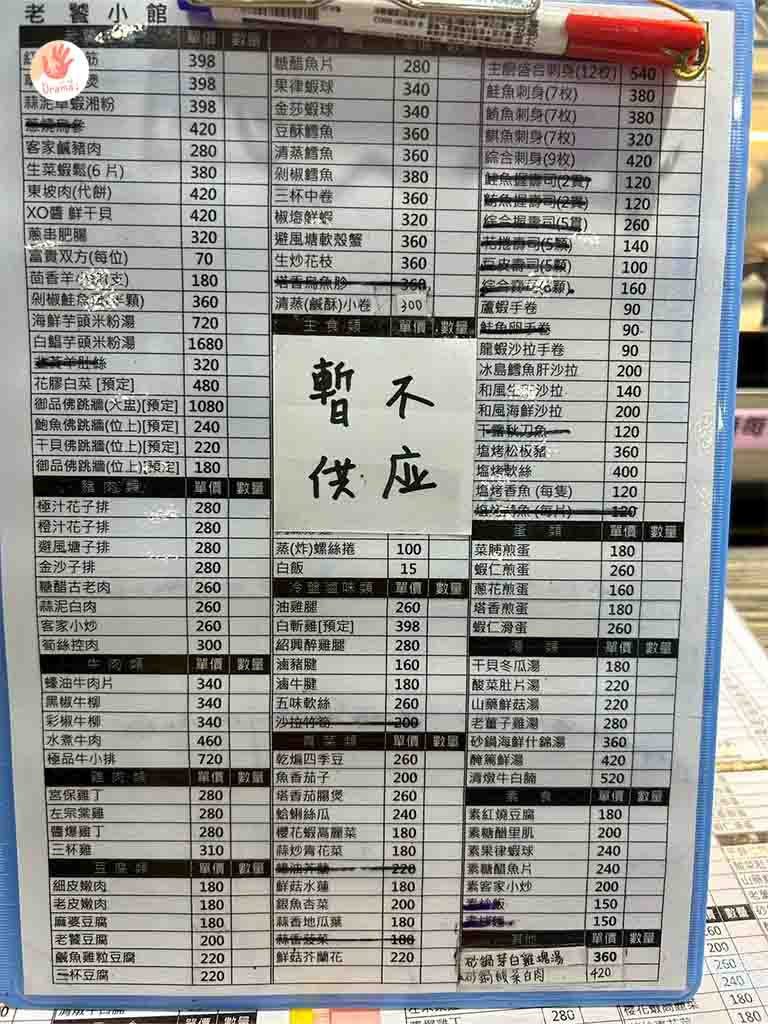 老饕小館
Drama
單價 數量
398
398
蒜泥草蝦湘粉 398
蔥燒烏參 420
客家鹹豬肉 280
生菜蝦鬆(6 片) 380
東坡肉(代餅) 420
XO醬 鮮干貝 420
蔥串肥腸 320
富貴双方(每位) 70
茴香羊 180
剁椒鮭魚 360
海鮮芋頭米粉湯 720
白鯧芋頭米粉湯 1680
320
花膠白菜 [預定] 480
御品佛跳牆(大盅)[預定] 1080
鮑魚佛跳牆(位上)[預定] 240
干貝佛跳牆(位上)[預定] 220
御品佛跳牆(位上)[預定] 180
豬肉類 單價 數量
極汁花子排 280
橙汁花子排 280
避風塘子排 280
金沙子排 280
糖醋古老肉 260
蒜泥白肉 260
客家小炒 260
筍絲控肉 300
牛肉類 單價 數量
蠔油牛肉片 340
黑椒牛柳 340
彩椒牛柳 340
水煮牛肉 460
極品牛小排 720
雞肉類 單價 數量
宮保雞丁 280
左宗棠雞 280
醬爆雞丁 280
三杯雞 310
豆腐類 單價 數量
細皮嫩肉 180
老皮嫩肉 180
麻婆豆腐 180
老饕豆腐 200
鹹魚雞粒豆腐 220
三杯豆腐 220
糖醋魚片 280
果律蝦球 340
金莎蝦球 340
豆酥鱈魚 360
清蒸鱈魚 360
剁椒鱈魚 380
三杯中卷 360
椒塩鮮蝦 320
避風塘軟殼蟹 360
生炒花枝 360
塔香烏魚胗 360
清蒸(鹹酥)小卷 300
主食類 單價 數量
暫不
供应
蒸(炸)螺絲捲 100
白飯 15
冷盤滷味類 單價 數量
油雞腿 260
白斬雞[預定] 398
紹興醉雞腿 280
滷豬腱 160
滷牛腱 180
五味軟絲 260
沙拉竹筍 200
青菜類 單價 數量
乾煸四季豆 260
魚香茄子 200
塔香茄腸煲 260
蛤蜊絲瓜 240
櫻花蝦高麗菜 180
蒜炒青花菜 180
蠔油芥蘭 220
鮮菇水蓮 180
銀魚杏菜 200
蒜香地瓜葉 180
蒜香菠菜 180
鮮菇芥蘭花 220
主廚盛合刺身(12枚) 540
鮭魚刺身(7枚) 380
鮪魚刺身(7枚) 380
旗魚刺身(7枚) 320
綜合刺身(9枚) 420
鮭魚握壽司(2貫) 120
鮪魚握壽司(2貫) 120
綜合握壽司(5貫) 260
花捲壽司(5顆) 140
豆皮壽司(5顆) 100
160
蘆蝦手卷 90
鮭魚卵手卷 90
龍蝦沙拉手卷 90
冰島鱈魚肝沙拉 200
140
和風海鮮沙拉 200
干露秋刀魚 120
塩烤松板豬 360
塩烤軟絲 400
塩烤香魚 (每隻) 120
120
蛋類 單價 數量
菜脯煎蛋 180
蝦仁煎蛋 260
蔥花煎蛋 160
塔香煎蛋 180
蝦仁滑蛋 260
湯類 單價 數量
干貝冬瓜湯 180
酸菜肚片湯 220
山藥鮮菇湯 220
老薑子雞湯 280
砂鍋海鮮什錦湯 360
醃篤鮮湯 420
清燉牛白腩 520
素食 單價 數量
素紅燒豆腐 180
素糖醋里肌 200
素果律蝦球 240
素糖醋魚片 240
素客家小炒 200
素炒飯 150
150
其他 單價 數量
砂鍋芽白雞塊湯 360
砂鍋酸菜白肉 420